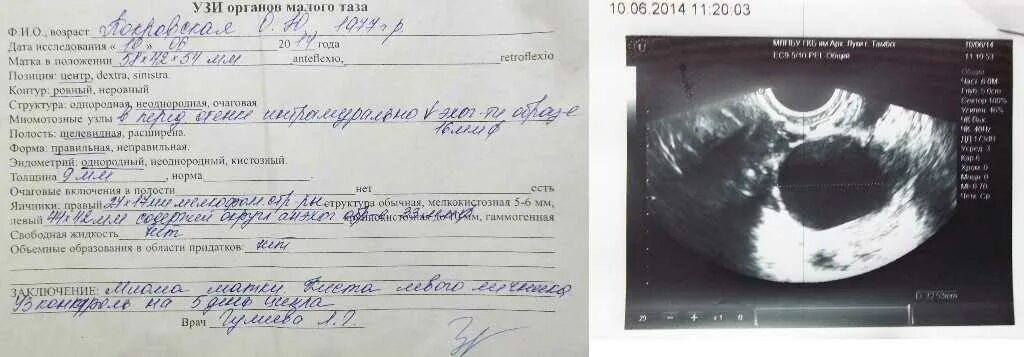 УЗИ органов малого таза
Ф.И.О., возраст Покровская О. Ю 1977 г.р
Дата исследования « 10 » 06 2014 года
Матка в положении 58×42×54 мм anteflexio, retroflexio
Позиция: центр, dextra, sinistra.
Контур: ровный, неровный
Структура: однородная, неоднородная, очаговая
Миомотозные узлы в перед стенке интрамурально образ-е
16 мм
Полость: щелевидная, расширена.
Форма: правильная, неправильная.
Эндометрий: однородный, неоднородный, кистозный.
Толщина 9 мм , норма
Очаговые включения в полости нет есть
Яичники: правый 27×17мм структура обычная, мелкокистозная 5-6 мм,
левый 44×42мм мм, гаммогенная
Свободная жидкость нет
Объемные образования в области придатков: нет
ЗАКЛЮЧЕНИЕ: Миома матки. Киста левого яичника
Уз контроль на 5 день цикла
Врач
10.06.2014 11:20:03
МЛПБУ ГКБ им Арх. Луки г. Тамбо 10/06/14
EC9 5/10 PEL Общий 11:10:53
Общий
Част. 6.0M
Глуб 5.0см
Сектор 100%
Усилен. 46%
ЧК Вык
ЧК 40Hz
Усред. 3
Кар 6
Хром. 0
Модел 0
MI 0.70
Чётк Ср.
D: 32.53mm
29 − + x1 0